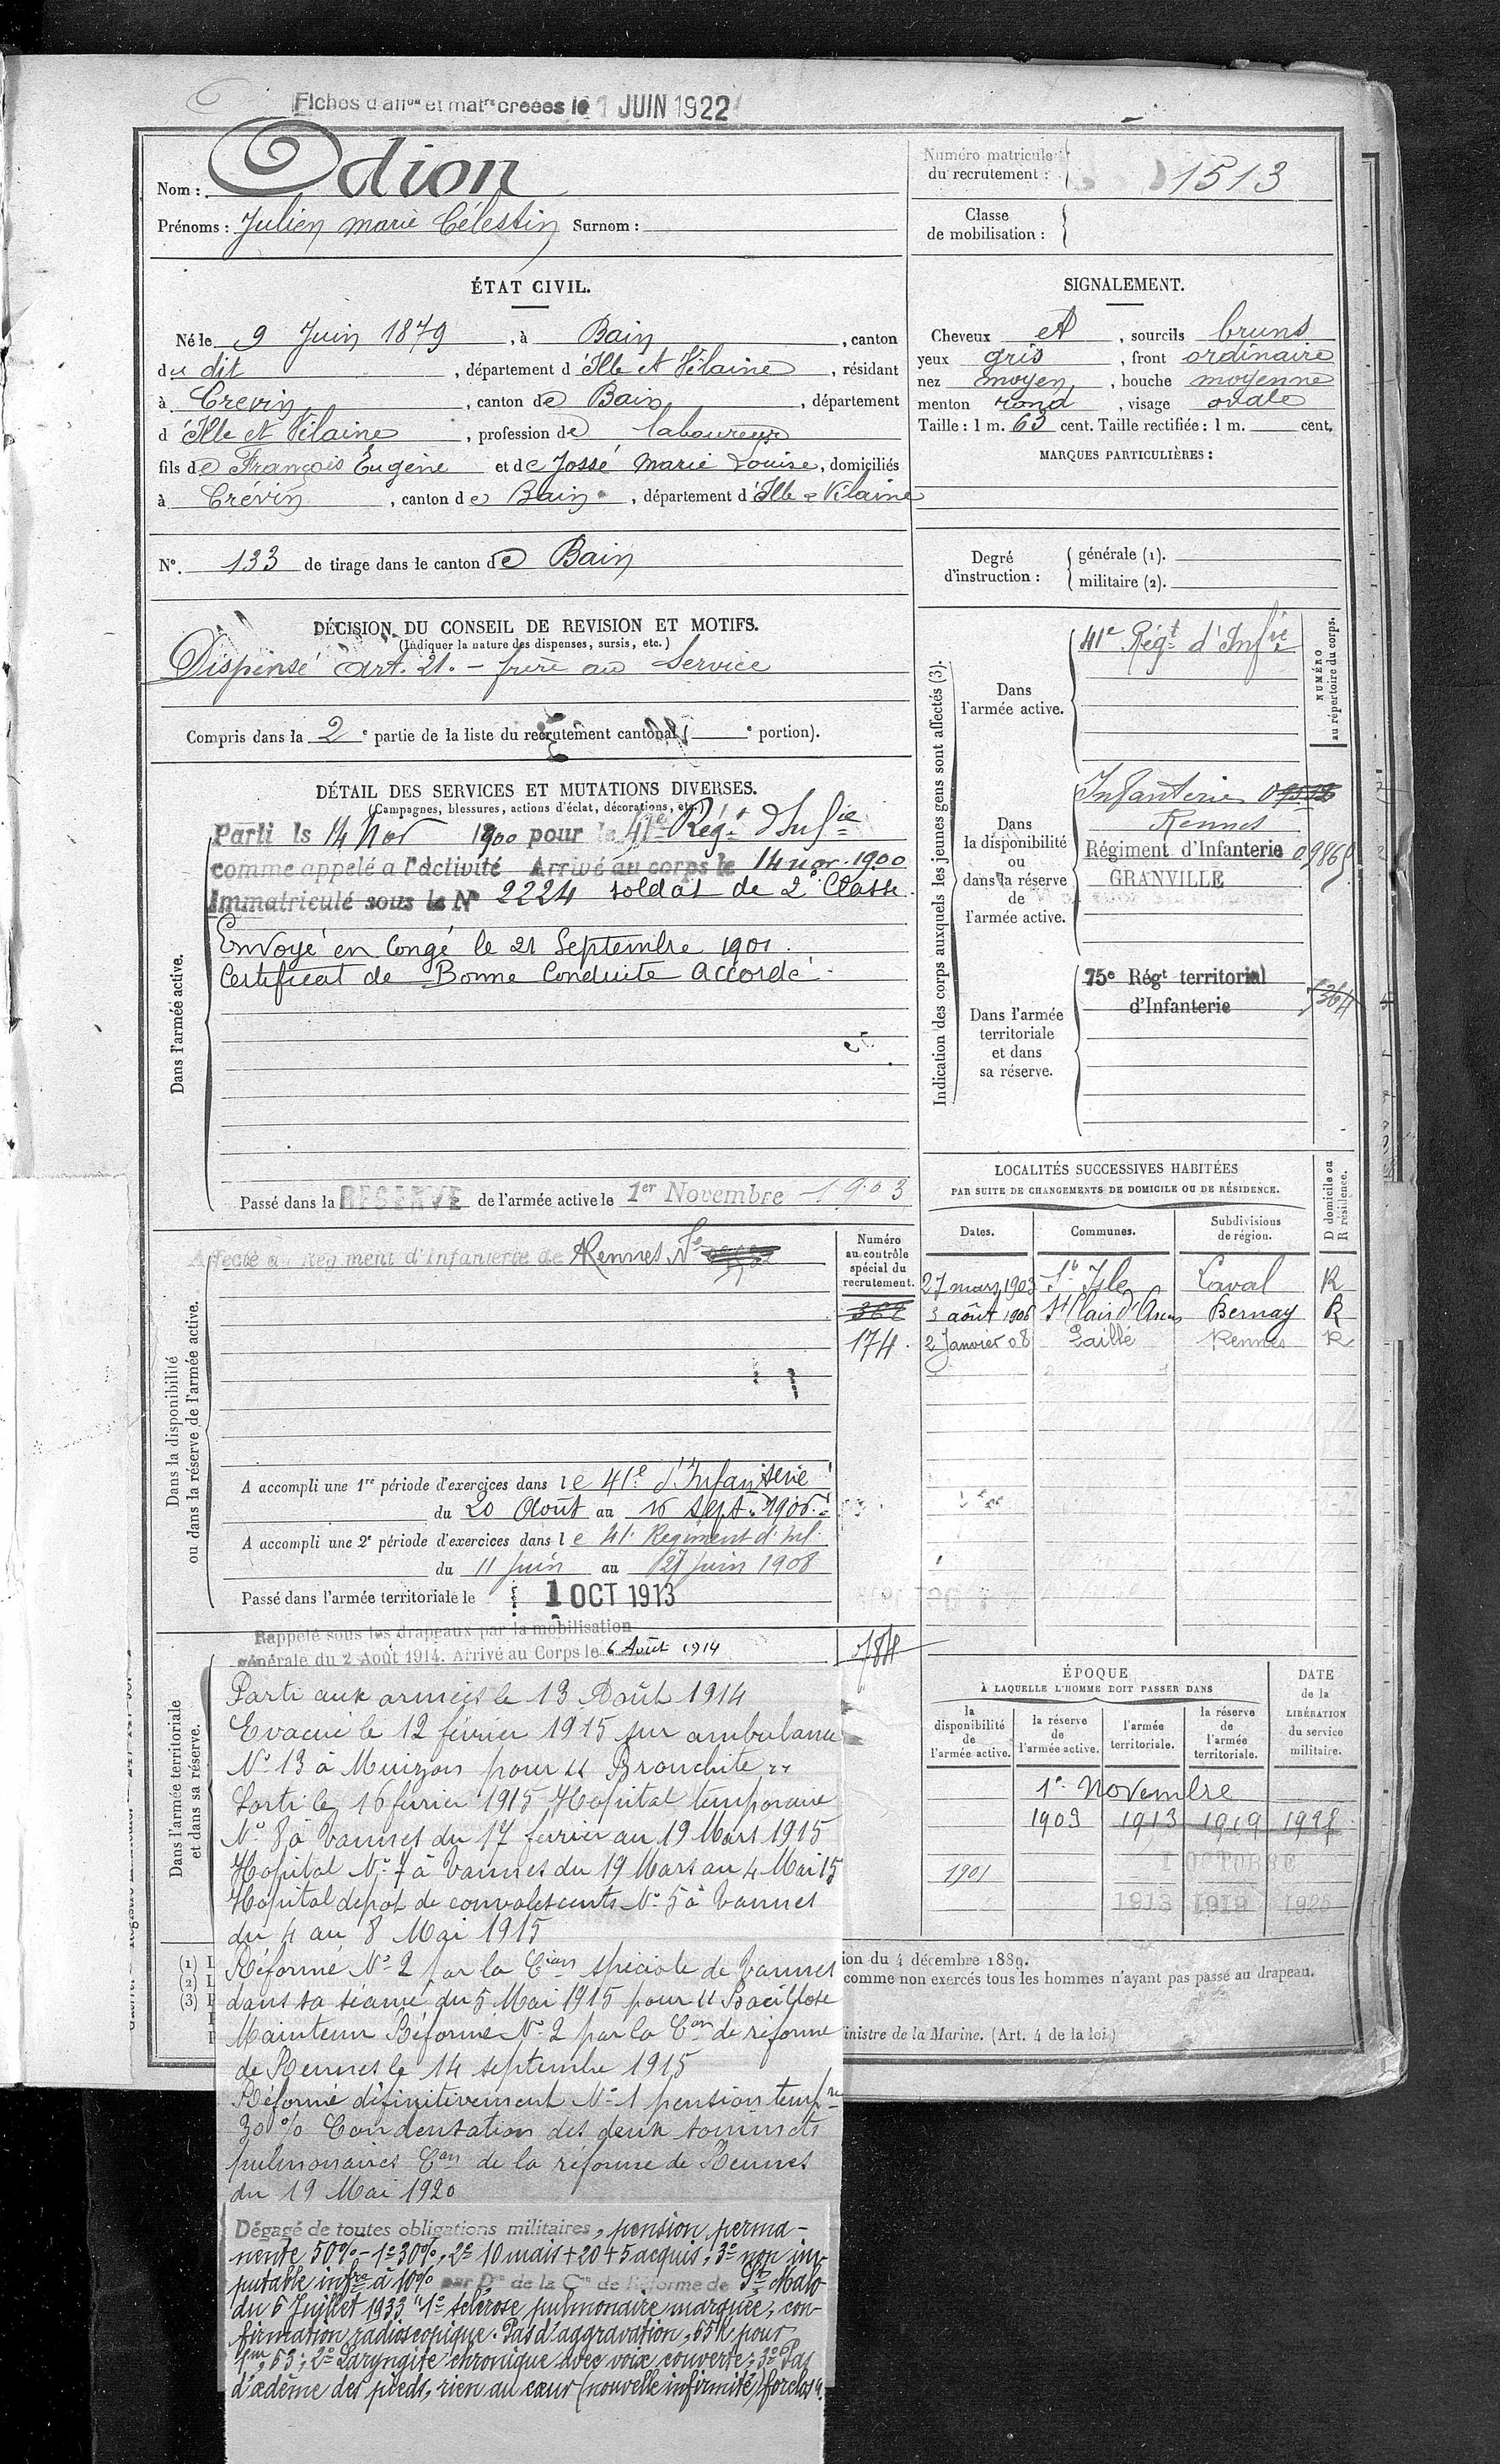 Fiches d'aff^on et mat^re créées le 1 JUIN 1922
Nom : Odion
Prénoms : Julien Marie Célestin Surnom :
Numéro matricule du recrutement : 1513
Classe de mobilisation :
ÉTAT CIVIL.
Né le 9 Juin 1879, à Bain, canton
du dit, département d'Ille et Vilaine, résidant
à Crevin, canton de Bain, département
d'Ille et Vilaine, profession de laboureur
fils de François Eugène et de Jossé Marie Louise, domiciliés
à Crévin, canton de Bain, département d'Ille & Vilaine
N° 133 de tirage dans le canton de Bain
SIGNALEMENT.
Cheveux et, sourcils bruns
yeux gris, front ordinaire
nez moyen, bouche moyenne
menton rond, visage ovale
Taille : 1 m. 63 cent. Taille rectifiée : 1 m. cent.
MARQUES PARTICULIÈRES :
Degré d'instruction : générale (1). militaire (2).
DÉCISION DU CONSEIL DE REVISION ET MOTIFS.
(Indiquer la nature des dispenses, sursis, etc.)
Dispensé art. 21. – frère au service
Compris dans la 2e partie de la liste du recrutement cantonal ( e portion).
DÉTAIL DES SERVICES ET MUTATIONS DIVERSES.
(Campagnes, blessures, actions d'éclat, décorations, etc.)
Dans l'armée active.
Parti le 14 Nov 1900 pour le 41e Régt d'Infie
comme appelé a l'activité Arrivé au corps le 14 nov. 1900
Immatriculé sous le N° 2224 soldat de 2e Classe.
Envoyé en Congé le 21 Septembre 1901.
Certificat de Bonne Conduite Accordé.
Passé dans la RESERVE de l'armée active le 1er Novembre 1903
Indication des corps auxquels les jeunes gens sont affectés (3).
NUMÉRO au répertoire du corps.
Dans l'armée active.
41e Régt d'Infie
Dans la disponibilité ou dans la réserve de l'armée active.
Infanterie
Rennes
Régiment d'Infanterie 09865
GRANVILLE
Dans l'armée territoriale et dans sa réserve.
75e Régt territorial
d'Infanterie
5364
Dans la disponibilité ou dans la réserve de l'armée active.
Affecté au Régiment d'Infanterie de Rennes N°
Numéro au contrôle spécial du recrutement.
362
174
A accompli une 1re période d'exercices dans le 41e d'Infanterie
du 20 Août au 16 Sept. 1906.
A accompli une 2e période d'exercices dans le 41e Régiment d'Inf.
du 11 Juin au 27 Juin 1908
Passé dans l'armée territoriale le 1 OCT 1913
LOCALITÉS SUCCESSIVES HABITÉES
PAR SUITE DE CHANGEMENTS DE DOMICILE OU DE RÉSIDENCE.
Dates. Communes. Subdivisions de région. D domicile ou R résidence.
27 mars 1903 St Isle Laval R
3 août 1906 St Clair d'Arcey Bernay R
2 Janvier 08 Laillé Rennes R
Dans l'armée territoriale et dans sa réserve.
Rappelé sous les drapeaux par la mobilisation
générale du 2 Août 1914. Arrivé au Corps le 6 Août 1914
784
Parti aux armées le 13 Août 1914
Evacué le 12 février 1915 sur ambulance
N° 13 à Muizon pour "Bronchite"
Sorti le 16 février 1915 Hopital temporaire
N° 8 à Vannes du 17 février au 19 Mars 1915
Hopital N° 7 à Vannes du 19 Mars au 4 Mai 15
Hopital depot de convalescents N° 5 à Vannes
du 4 au 8 Mai 1915
Réformé N° 2 par la Cion spéciale de Vannes
dans sa séance du 5 Mai 1915 pour "Bacillose
Maintenu Réformé N° 2 par la Con de réforme
de Rennes le 14 septembre 1915
Réformé définitivement N° 1 pension tempre
30% Condensation des deux sommets
pulmonaires Con de la réforme de Rennes
du 19 Mai 1920
Dégagé de toutes obligations militaires, pension perma-
nente 50% – 1° 30%, 2° 10 mais + 20 + 5 acquis, 3° non im-
putable infre à 10% par Don de la Con de Réforme de St Malo
du 6 Juillet 1933 "1° sclérose pulmonaire marquée, con-
firmation radioscopique. Pas d'aggravation, 65K pour
1m,63; 2° Laryngite chronique avec voix couverte; 3° Pas
d'œdème des pieds, rien au cœur (nouvelle infirmité) forclos".
ÉPOQUE À LAQUELLE L'HOMME DOIT PASSER DANS
DATE de la LIBÉRATION du service militaire.
la disponibilité de l'armée active. la réserve de l'armée active. l'armée territoriale. la réserve de l'armée territoriale.
1er Novembre
1903 1913 1919
1901 1 OCTOBRE
1913 1919
(1)
(2)
(3)
ion du 4 décembre 1889.
comme non exercés tous les hommes n'ayant pas passé au drapeau.
inistre de la Marine. (Art. 4 de la loi.)